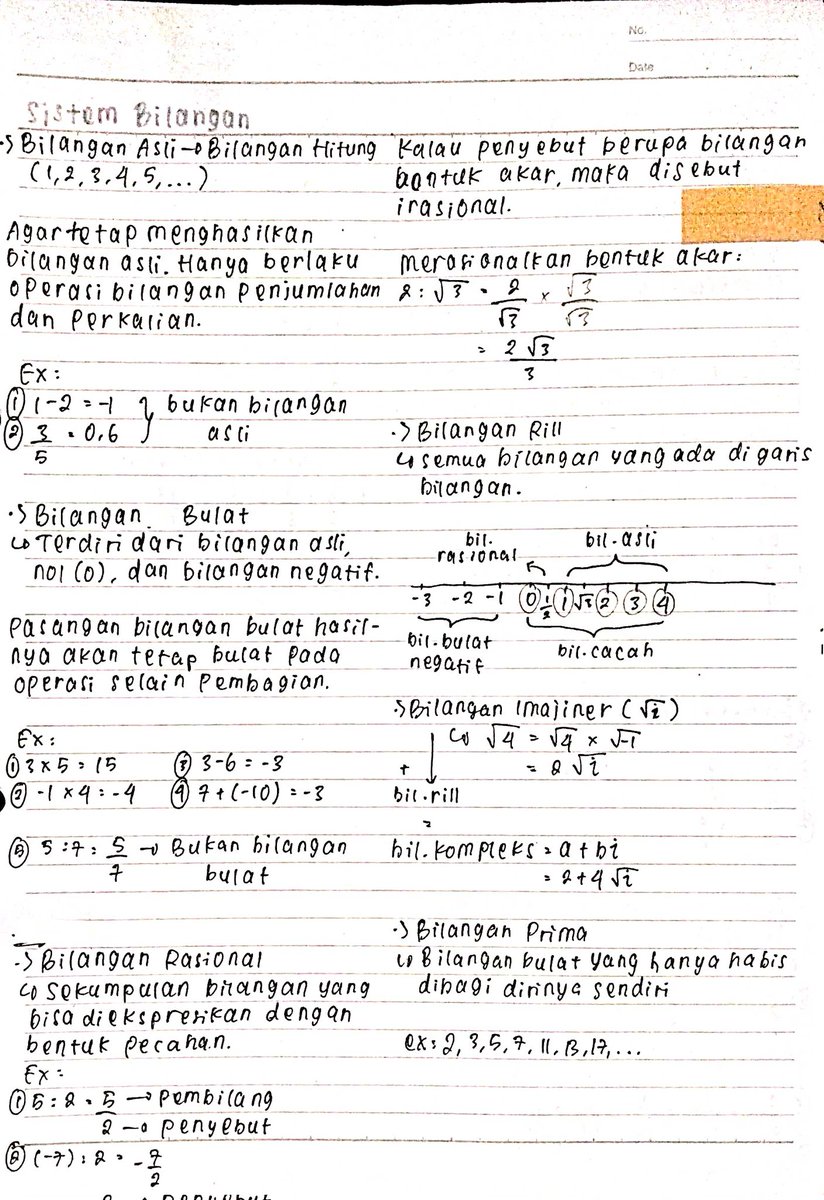 No.
Date
Sistem Bilangan
·> Bilangan Asli → Bilangan Hitung
(1, 2, 3, 4, 5, ...)
Agar tetap menghasilkan
bilangan asli. Hanya berlaku
operasi bilangan penjumlahan
dan perkalian.
Ex:
① 1 - 2 = -1 } bukan bilangan
② 3/5 = 0,6 asli
·> Bilangan Bulat
↳ Terdiri dari bilangan asli,
nol (0), dan bilangan negatif.
Pasangan bilangan bulat hasil-
nya akan tetap bulat pada
operasi selain pembagian.
Ex:
① 3 x 5 = 15 ③ 3 - 6 = -3
② -1 x 4 = -4 ④ 7 + (-10) = -3
⑤ 5 : 7 = 5/7 → Bukan bilangan
bulat
·> Bilangan Rasional
↳ Sekumpulan bilangan yang
bisa diekspresikan dengan
bentuk pecahan.
Ex:
① 5 : 2 = 5 → Pembilang
2 → penyebut
② (-7) : 2 = -7/2
Kalau penyebut berupa bilangan
bentuk akar, maka disebut
irasional.
merasionalkan bentuk akar:
2 : √3 = 2/√3 x √3/√3
= 2√3/3
·> Bilangan Rill
↳ semua bilangan yang ada di garis
bilangan.
bil. rasional
bil. asli
-3 -2 -1 0 1/2 1 √3 2 3 4
bil. bulat negatif
bil. cacah
·> Bilangan Imajiner (√i)
↳ √4 = √4 x √-1
= 2√i
+
bil. rill
=
bil. kompleks = a + bi
= 2 + 4√i
·> Bilangan Prima
↳ Bilangan bulat yang hanya habis
dibagi dirinya sendiri
ex: 2, 3, 5, 7, 11, 13, 17, ...